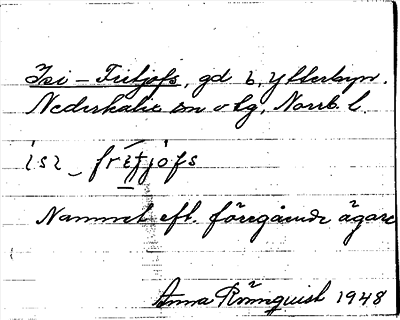 Isi-Fritjofs, gd i, Ytterbyn.
Nederkalix sn o lg, Norrb. l.
isi_ fritjofs
Namnet eft. föregående ägare
Anna Rönnquist 1948